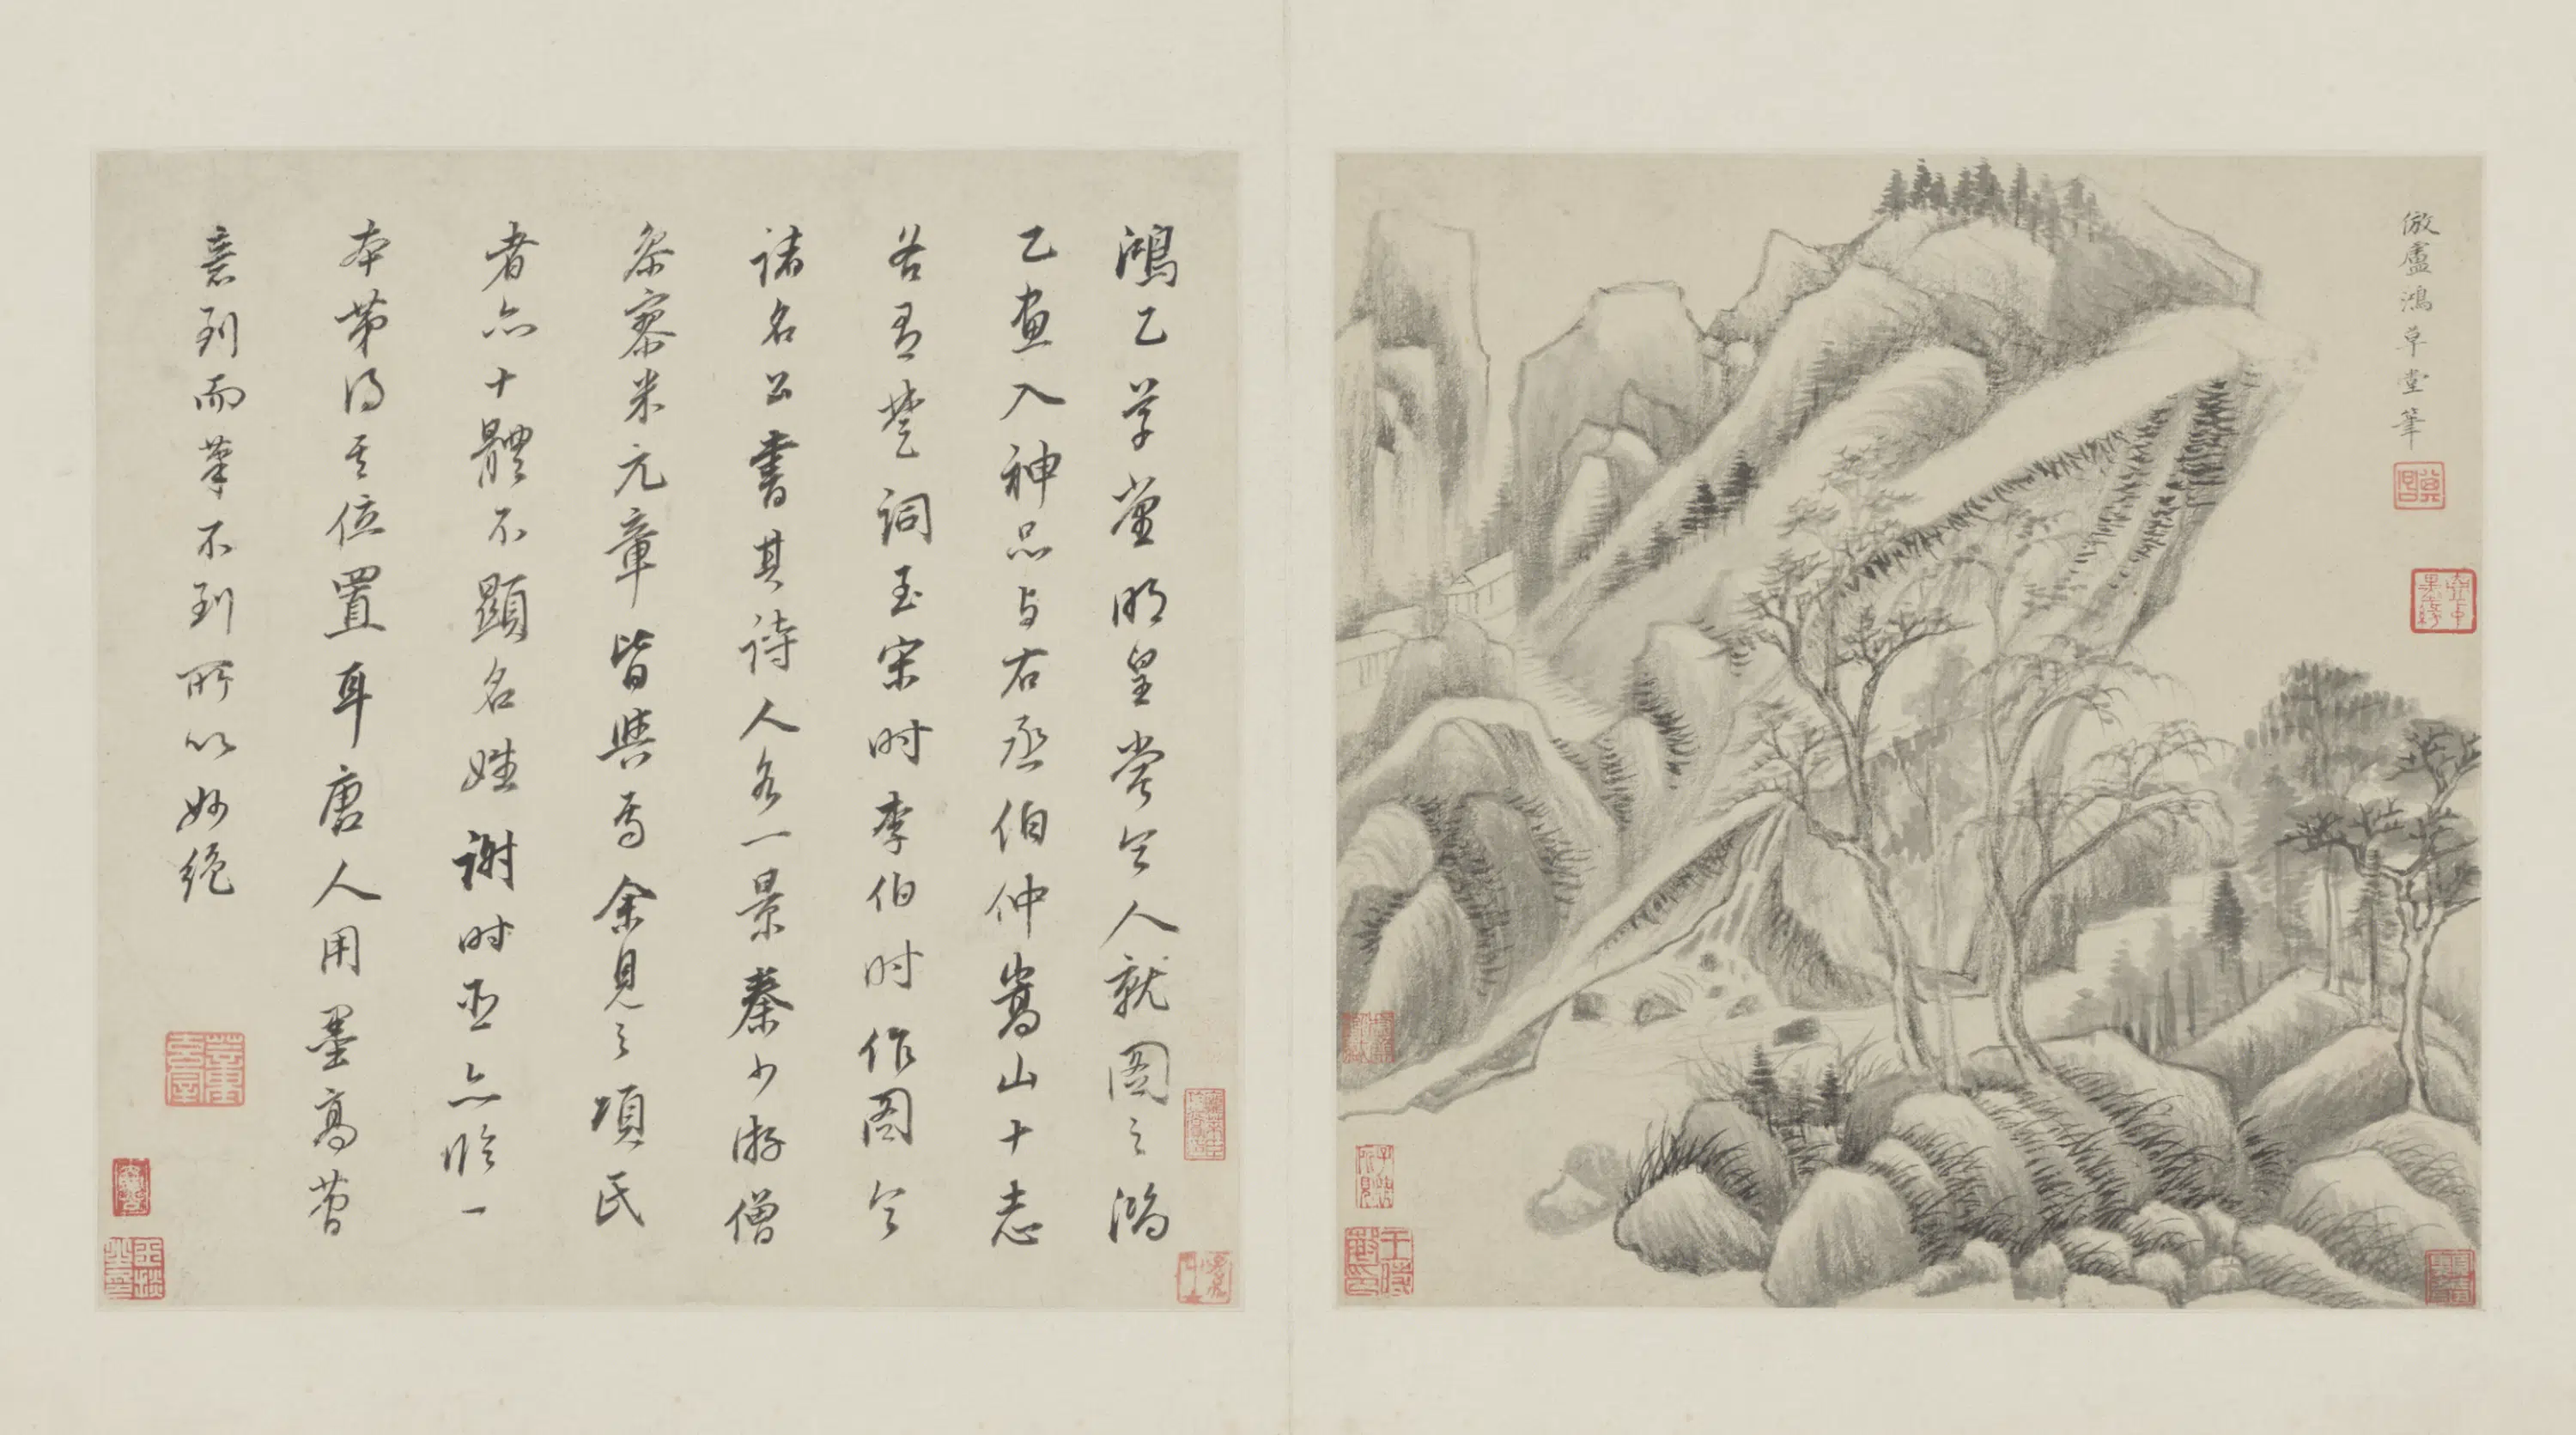 倣盧鴻草堂筆
其昌
鴻乙草堂明皇嘗令人就圖之鴻
乙畫入神品与右丞伯仲嵩山十志
各有楚詞至宋时李伯时作圖令
諸名公書其诗人各一景秦少游僧
參寥米元章皆與焉余見之項氏
者亦十體不顯名姓謝时臣亦临一
本第得其位置耳唐人用墨高簡
意到而筆不到所以妙絕
董玄宰